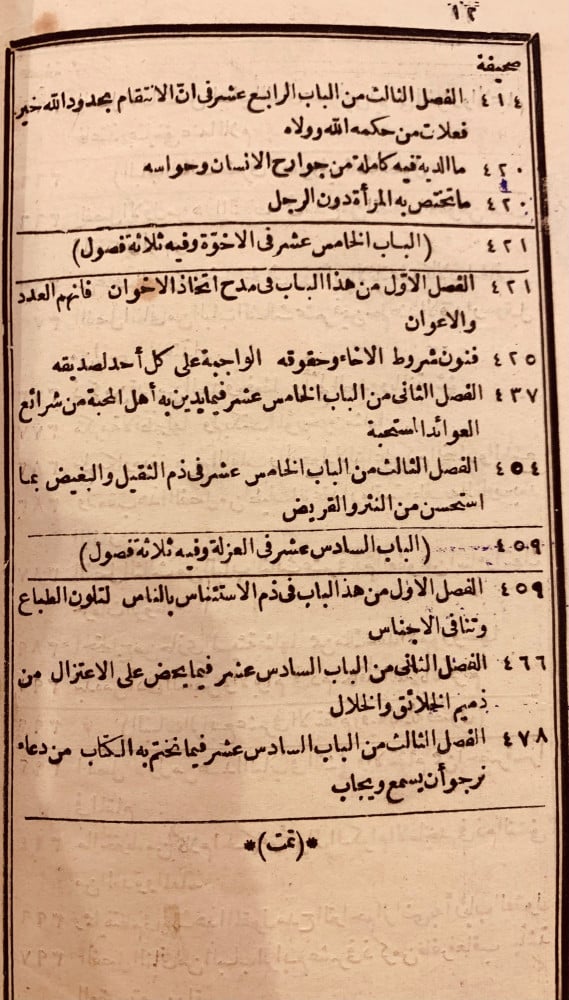 ١٢
صحيفة
٤١٤ الفصل الثالث من الباب الرابع عشر فى ان الانتقام بحدود الله خير
فعلات من حكمه الله وولاه
٤٢٠ ما الدية فيه كاملة من جوارح الانسان وحواسه
٤٢٠ ما تختص به المرأة دون الرجل
٤٢١ (الباب الخامس عشر فى الاخوّة وفيه ثلاثة فصول)
٤٢١ الفصل الاوّل من هذا الباب فى مدح اتخاذ الاخوان فانهم العدد
والاعوان
٤٢٥ فنون شروط الاخاء وحقوقه الواجبة على كل أحد لصديقه
٤٣٧ الفصل الثانى من الباب الخامس عشر فيما يدين به أهل المحبة من شرائع
العوائد المستحبة
٤٥٤ الفصل الثالث من الباب الخامس عشر فى ذم الثقيل والبغيض بما
استحسن من النثر والقريض
٤٥٩ (الباب السادس عشر فى العزلة وفيه ثلاثة فصول)
٤٥٩ الفصل الاوّل من هذ الباب فى ذم الاستئناس بالناس لتلون الطباع
وتنافى الاجناس
٤٦٦ الفصل الثانى من الباب السادس عشر فيما يحض على الاعتزال من
ذميم الخلائق والخلال
٤٧٨ الفصل الثالث من الباب السادس عشر فيما نختم به الكتاب من دعاء
نرجو أن يسمع ويجاب
*(تمت)*